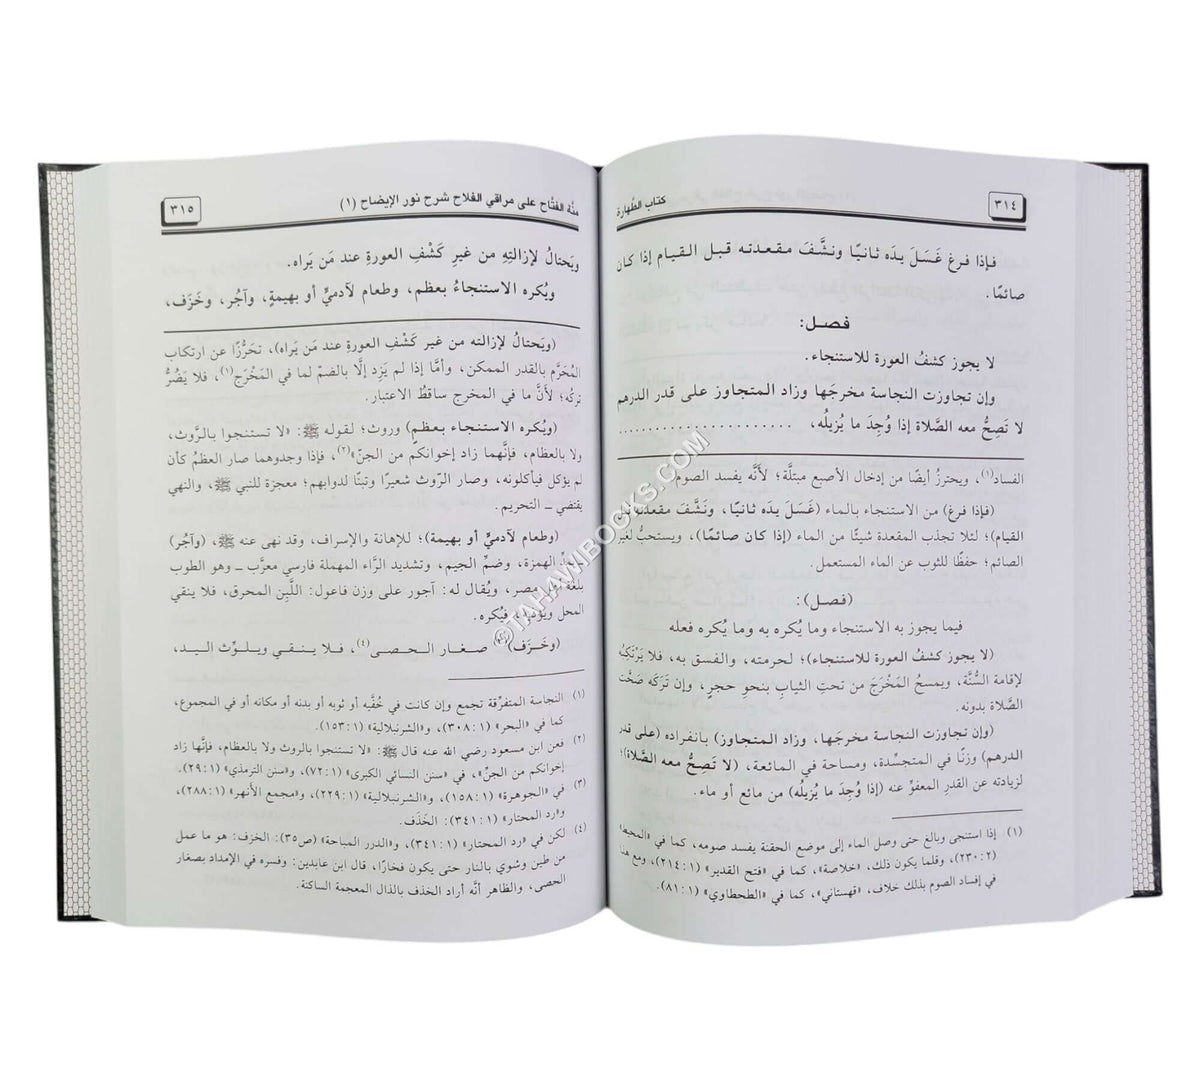 ٣١٤
كتاب الطهارة
فإذا فرغ غَسَلَ يدَه ثانيًا ونشَّفَ مقعدته قبل القيام إذا كان
صائمًا.
فصل:
لا يجوز كشفُ العورة للاستنجاء.
وإن تجاوزت النجاسة مخرجَها وزاد المتجاوز على قدر الدرهم
لا تَصِحُّ معه الصَّلاة إذا وُجِدَ ما يُزيلُه، ......................
الفساد(١)، ويحترزُ أيضًا من إدخال الأصبع مبتلَّة؛ لأنَّه يفسد الصوم.
(فإذا فرغ) من الاستنجاء بالماء (غَسَلَ يدَه ثانيًا، ونَشَّفَ مقعدته قبل
القيام)؛ لئلا تجذب المقعدة شيئًا من الماء (إذا كان صائمًا)، ويستحبُّ لغير
الصائم؛ حفظًا للثوب عن الماء المستعمل.
(فصل):
فيما يجوز به الاستنجاء وما يُكره به وما يُكره فعله
(لا يجوز كشفُ العورة للاستنجاء)؛ لحرمته، والفسق به، فلا يَرْتَكِبُه
لإقامة السُّنَّة، ويمسحُ المَخْرَجَ من تحتِ الثيابِ بنحو حجرٍ، وإن تَرَكَه صَحَّت
الصَّلاة بدونه.
(وإن تجاوزت النَّجاسة مخرجَها، وزاد المتجاوز) بانفراده (على قدر
الدرهم) وزنًا في المتجسِّدة، ومساحة في المائعة، (لا تَصِحُّ معه الصَّلاة)؛
لزيادته عن القدرِ المعفوِّ عنه (إذا وُجِدَ ما يُزيلُه) من مائع أو ماء.
(١) إذا استنجى وبالغ حتى وصل الماء إلى موضع الحقنة يفسد صومه، كما في «المحيط»
(٢: ٢٣٠)، وقلما يكون ذلك، «خلاصة»، كما في «فتح القدير» (١: ٢١٤)، ومع هذا
في إفساد الصوم بذلك خلاف، «قهستاني»، كما في «الطحطاوي» (١: ٨١).
منَّة الفتَّاح على مراقي الفلاح شرح نور الإيضاح (١)
٣١٥
ويَحتالُ لإزالتِهِ من غيرِ كَشْفِ العورةِ عند مَن يَراه.
ويُكره الاستنجاءُ بعظم، وطعام لآدميٍّ أو بهيمةٍ، وآجُر، وخَزَف،
(ويَحتالُ لإزالته من غير كَشْفِ العورةِ عند مَن يَراه)، تحَرُّزًا عن ارتكاب
المُحَرَّم بالقدر الممكن، وأمَّا إذا لم يَزِد إلَّا بالضمّ لما في المَخْرَج(١)، فلا يَضُرُّ
تركُه؛ لأنَّ ما في المخرج ساقطُ الاعتبار.
(ويُكره الاستنجاء بعظمٍ) وروث؛ لقوله ﷺ: «لا تستنجوا بالرَّوث،
ولا بالعظام، فإنَّهما زاد إخوانكم من الجنّ»(٢)، فإذا وجدوهما صار العظمُ كأن
لم يؤكل فيأكلونه، وصار الرّوث شعيرًا وتبنًا لدوابهم؛ معجزة للنبي ﷺ، والنهي
يقتضي ـ التحريم.
(وطعام لآدميٍّ أو بهيمة)؛ للإهانة والإسراف، وقد نهى عنه ﷺ، (وآجُر)
الهمزة، وضمّ الجيم، وتشديد الرَّاء المهملة فارسي معرَّب ـ وهو الطوب
بلغة مصر، ويُقال له: آجور على وزن فاعول: اللَّبِن المحرق، فلا ينقي
المحل ويؤذيه، فيُكره.
(وخَزَف)(٣) صغار الحصى(٤)، فلا ينقي ويلوّث اليد،
(١) النجاسة المتفرِّقة تجمع وإن كانت في خُفَّيه أو ثوبه أو بدنه أو مكانه أو في المجموع،
كما في «البحر» (١: ٣٠٨)، و«الشرنبلالية» (١: ١٥٣).
(٢) فعن ابن مسعود رضي الله عنه قال ﷺ: «لا تستنجوا بالروث ولا بالعظام، فإنَّها زاد
إخوانكم من الجنّ»، في «سنن النسائي الكبرى» (١: ٧٢)، و«سنن الترمذي» (١: ٢٩).
(٣) في «الجوهرة» (١: ١٥٨)، و«الشرنبلالية» (١: ٢٢٩)، و«مجمع الأنهر» (١: ٢٨٨)،
و«رد المحتار» (١: ٣٤١): الخَذَف.
(٤) لكن في «رد المحتار» (١: ٣٤١)، و«الدرر المباحة» (ص٣٥): الخزف: هو ما عمل
من طين وشوي بالنار حتى يكون فخارًا، قال ابن عابدين: وفسره في الإمداد بصغار
الحصى، والظاهر أنَّه أراد الخذف بالذال المعجمة الساكنة.
©TAHAWIBOOKS.COM